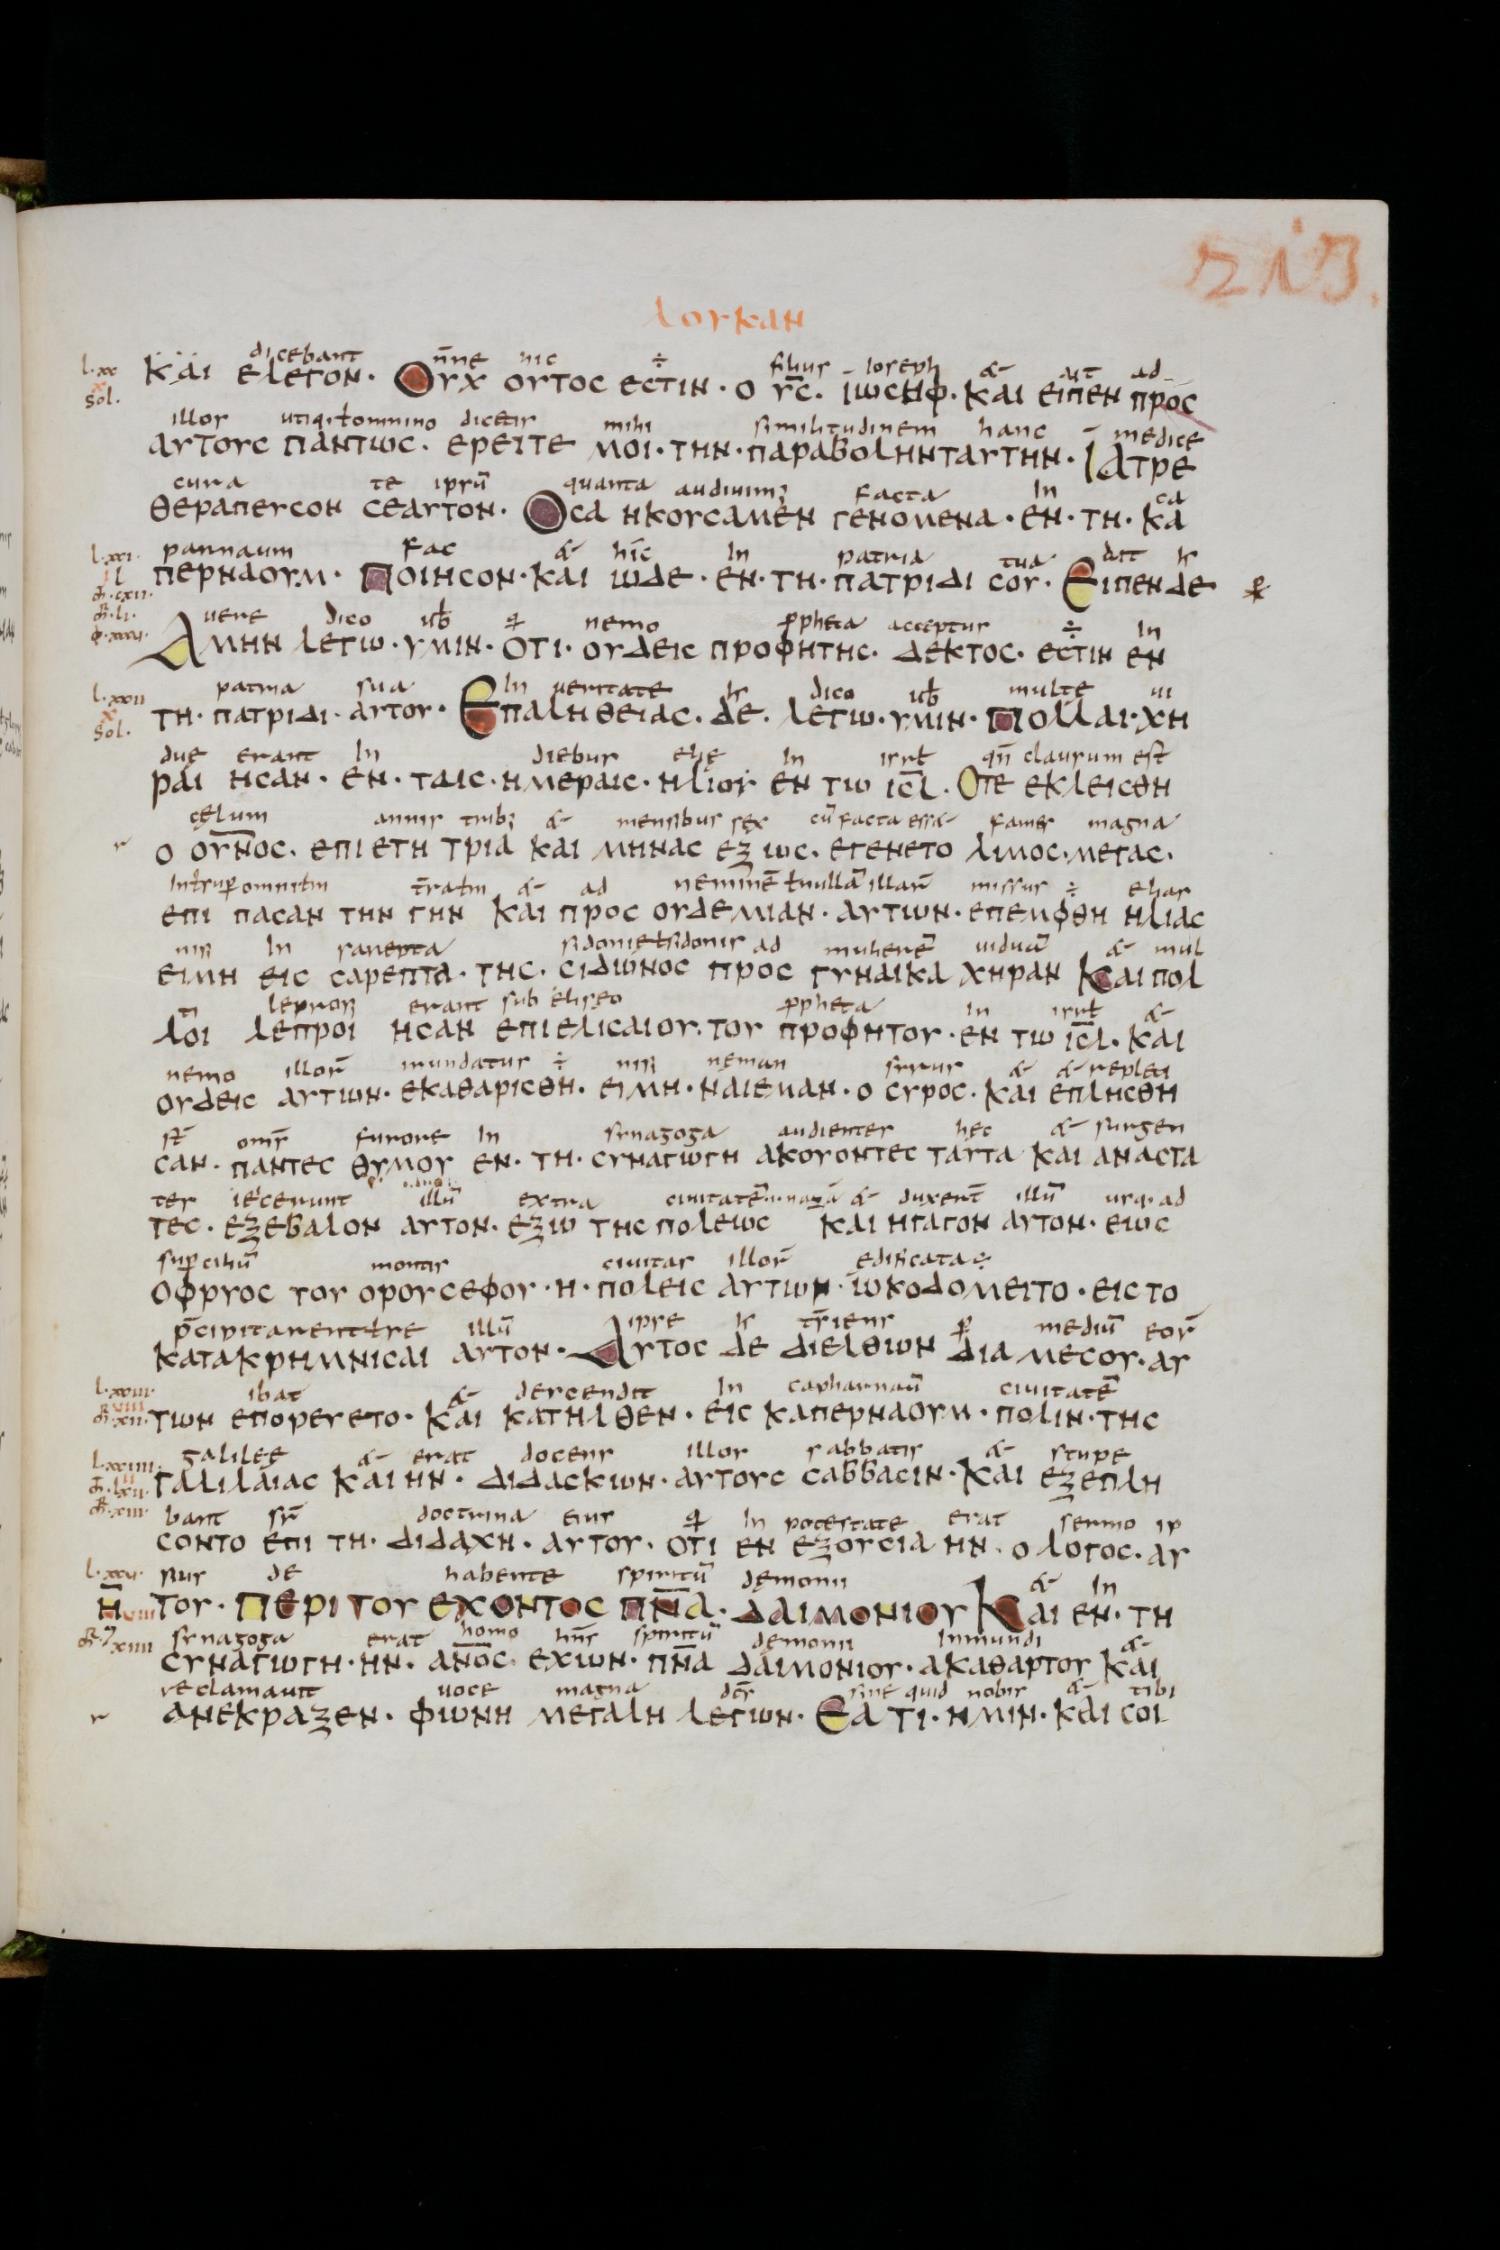 213.
λουκαν
dicebant n̄ne hic ÷ filius ioseph & ait ad
l. xx και ελεγον. Ουχ ουτος εστιν. ο υ̅ς̅. ιωσηφ. και ειπεν προς
x
sol.
illos utiq; ł omnino dicetis mihi similitudinem hanc medice
αυτους παντως. ερειτε μοι. την. παραβοληνταυτην. Ιατρε
cura te ipsū quanta audiuim; facta in ca
θεραπευσον σεαυτον. Οσα ηκουσαμεν γενομενα. εν. τη. κα
parnaum fac & hic in patria tua
l. xxi. περναουμ. Ποιησον. και ωδε. εν. τη. πατριδι σου. Ειπεν δε
uere dico nemo ꝓpheta acceptus ÷ in
Αμην λεγω. υμιν. οτι. ουδεις προφητης. δεκτος. εστιν εν
patria sua in ueritate dico multe ui
l. xxii τη. πατριδι. αυτου. Επαληθειας. δε. λεγω. υμιν. Πολλαι. χη
x
sol.
due erant in diebus elie in qn̄ clausum est
ραι ησαν. εν. ταις. ημεραις. ηλιου εν τω ι̅σ̅λ̅. Οτε εκλεισθη
cęlum annis trib; & mensibus sex cū facta esse fames magna
ο ουν̅ος. επι ετη τρια και μηνας εξ ως. εγενετο λιμος. μεγας.
& ad nemine ł nullā illarū missus ÷ elias
επι πασαν την γην και προς ουδεμιαν. αυτων. επεμφθη ηλιας
nisi in sarepta sidonie ł sidonis ad mulierē uiduā & mul
ειμη εις σαρεπτα. της. σιδωνος προς γυναικα χηραν Και πολ
ti leprosi erant sub eliseo ꝓpheta in &
λοι λεπροι ησαν επι ελισαιου. του προφητου. εν τω ι̅σ̅λ̅. και
nemo illorū mundatus ÷ nisi neman sirus & & repleti
ουδεις αυτων. εκαθαρισθη. ειμη. ναιεμαν. ο συρος. και επλησθη
st̄ om̄s furore in synagoga audientes hec & surgen
σαν. παντες θυμου εν. τη. συναγωγη ακουοντες ταυτα και αναστα
tes iecerunt illū extra ciuitatē & duxert̄ illū usq. ad
τες. εξεβαλον αυτον. εξω της πολεως και ηγαγον αυτον. εως
supciliū montis ciuitas illorū edificata ÷
οφρυος του ορους εφου. η. πολεις αυτων. ωκοδομειτο. εις το
illū ipse trīens ꝑ mediū eorū
κατακρημνισαι αυτον. Αυτος δε διελθων δια μεσου. αυ
ibat & descendit in capharnaū ciuitatē
l. xxiii. των επορευετο. και κατηλθεν. εις καπερναουμ. πολιν. της
galilee & erat docens illos sabbatis & stupe
l. xxiiii. γαλιλαιας και ην. διδασκων. αυτους σαββασιν. και εξεπλη
bant doctrina eius in potestate erat sermo ip
σοντο επι τη. διδαχη. αυτου. οτι εν εξουσια ην. ο λογος. αυ
sius de habente spiritū demonii & in
l. xxv. του. Περι του εχοντος π̅ν̅α̅. δαιμονιου Και εν. τη
synagoga erat homo hn̄s spiritū demonii inmundi &
συναγωγη. ην. α̅ν̅ο̅ς̅. εχων. π̅ν̅α̅ δαιμονιου. ακαθαρτου και
reclamauit uoce magna sine quid nobis & tibi
ανεκραξεν. φωνη μεγαλη λεγων. Εα τι. ημιν. και σοι